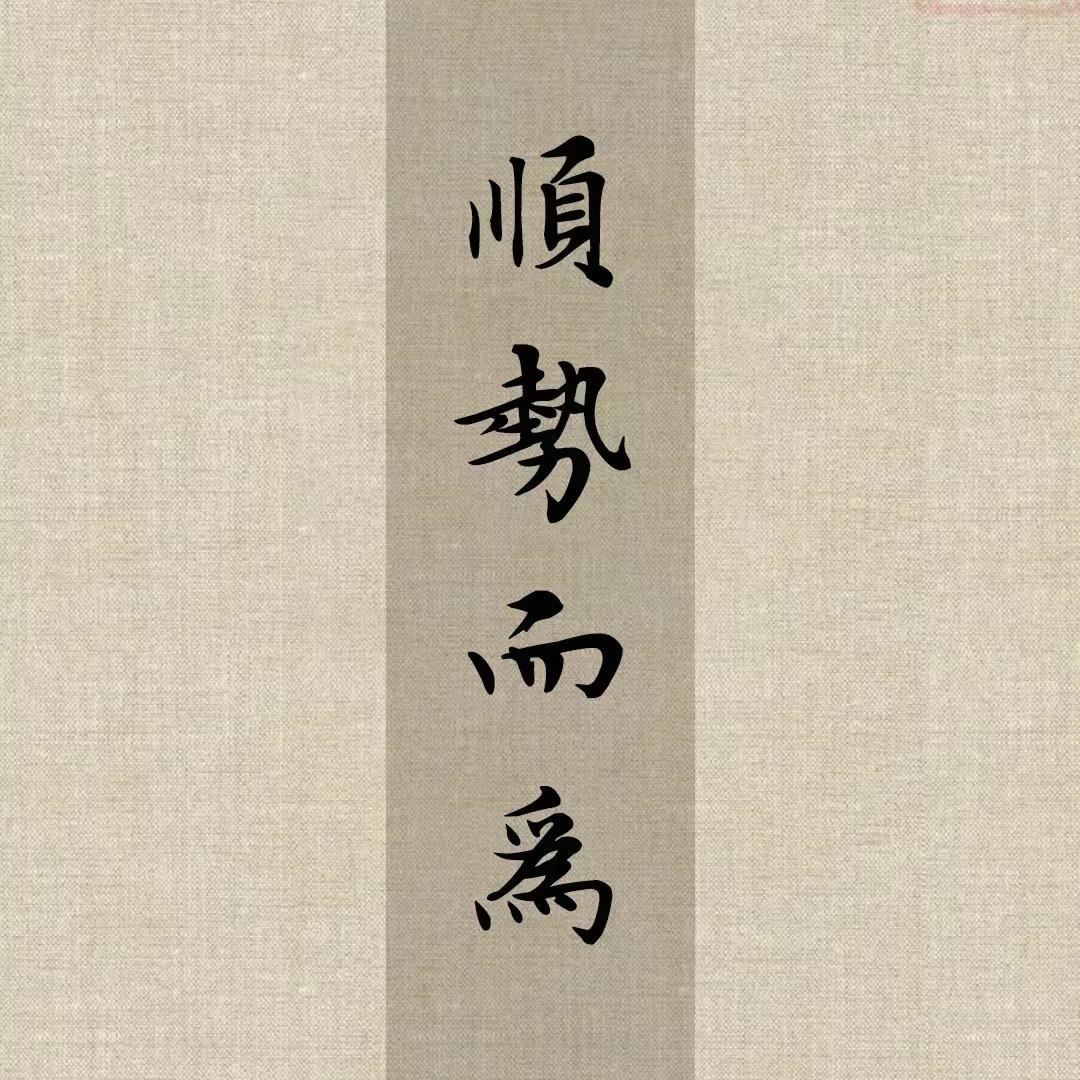 順勢而爲